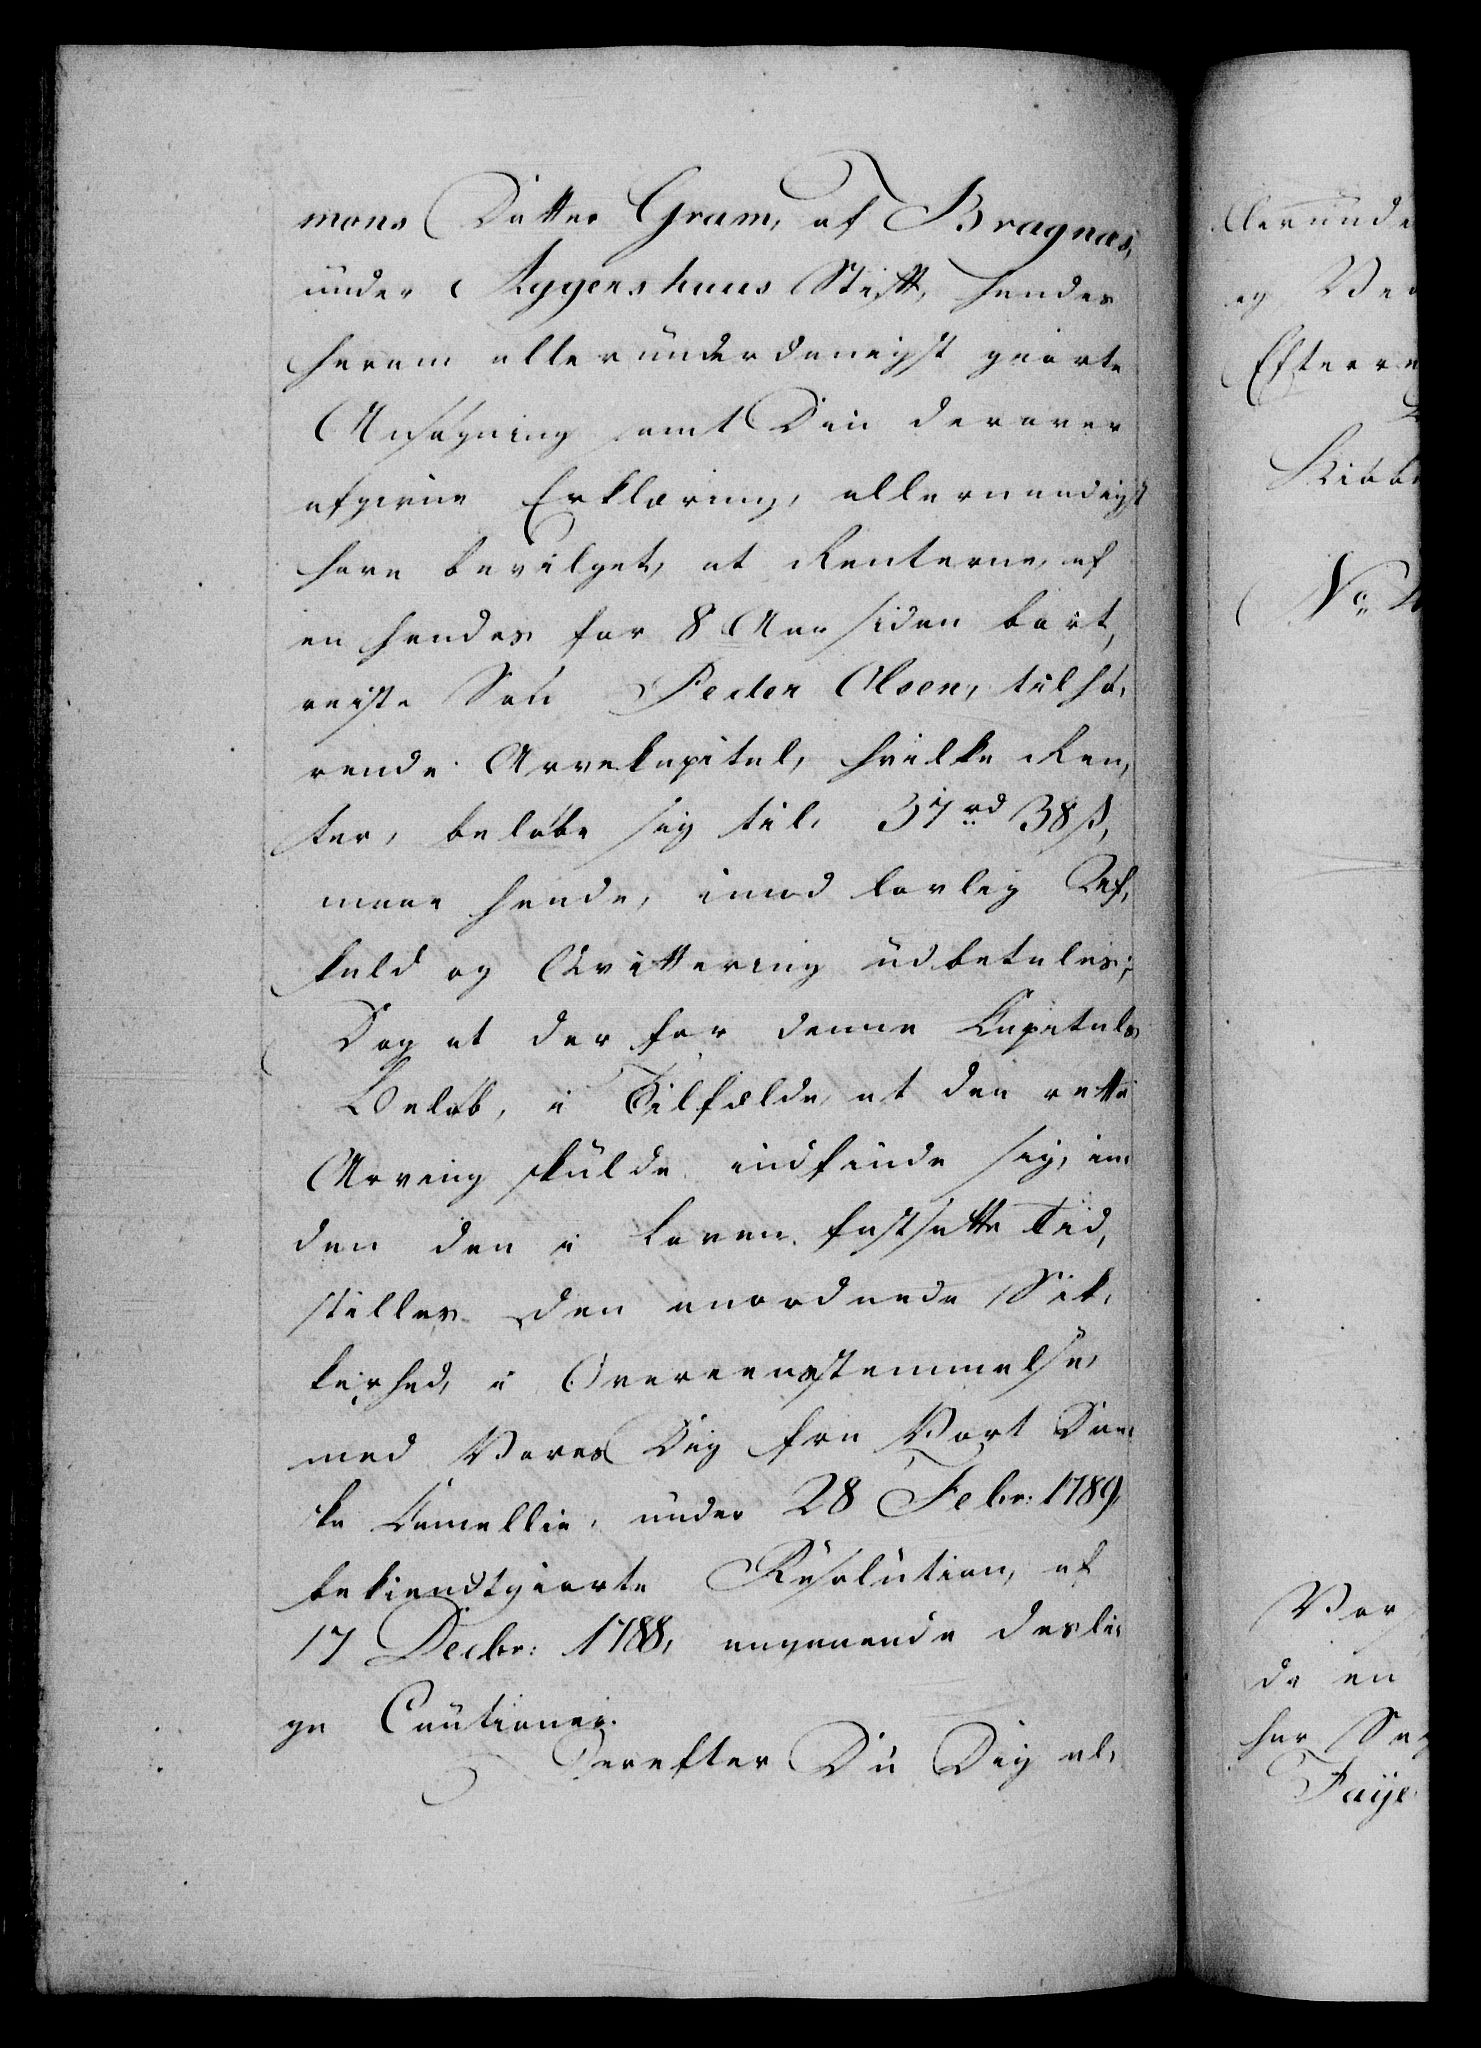 mons Datter Gram, af Bragnæs,
under Aggershuus Stift, hendes
herom allerunderdanigst giorte
Ansøgning samt Din derover
afgivne Erklæring, allernaadigst
have bevilget, at Renterne, af
en hendes for 8 Aar siden bort,
reiste Søn Peder Olsen, tilhø,
rende Arvekapital, hvilke Ren,
ter, beløbe sig til 37 rd 38 ß,
maae hende, imod lovlig Af,
kald og Qvittering udbetales;
Dog at der for denne Capitals
Beløb, i Tilfælde at den rette
Arving skulde indfinde sig, in,
den den i Loven fastsatte Tid,
stilles den anordnede Sik,
kerhed, i Overeensstemmelse,
med Vores Dig fra Vort Dan,
ske Cancellie, under 28 Febr: 1789,
bekiendtgiorte Resolution, af
17 Decbr: 1788, angaaende desli,
ge Cautioner.
Derefter Du Dig al,
lerunde
og Ve
Efterre
Kiøbe
No
Vor
de en
har Sa
Faye